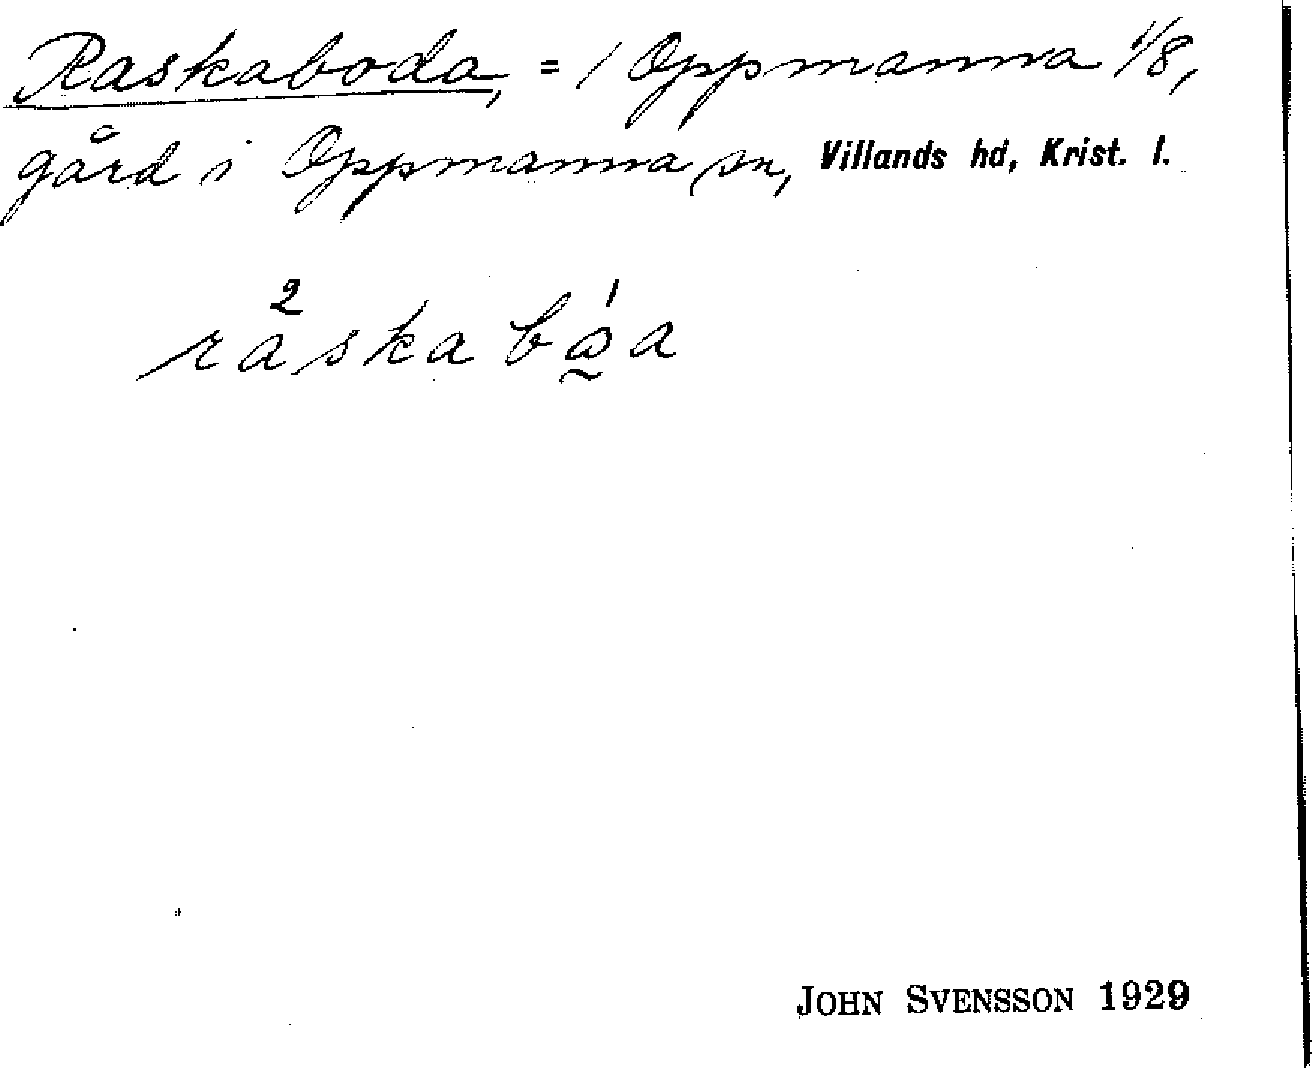 Raskaboda, = 1 Oppmanna 1/8,
gård i Oppmanna sn, Villands hd, Krist. l.
raskabo̰a
JOHN SVENSSON 1929